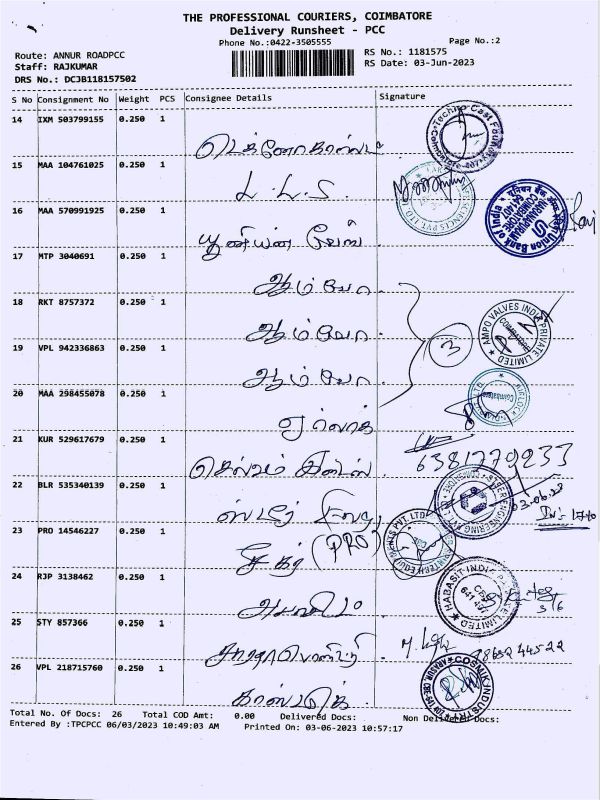 THE PROFESSIONAL COURIERS, COIMBATORE
Delivery Runsheet - PCC
Phone No.:0422-3505555
Page No.:2
Route: ANNUR ROADPCC
RS No.: 1181575
Staff: RAJKUMAR
RS Date: 03-Jun-2023
DRS No.: DCJB118157502
S No Consignment No Weight PCS Consignee Details Signature
14 IXM 503799155 0.250 1
டெக்னோகாஸ்ட்
15 MAA 104761025 0.250 1
L.L.S.
16 MAA 570991925 0.250 1
Union Bank of India
யூனியன் பேங்
17 MTP 3040691 0.250 1
ஆம்போ
18 RKT 8757372 0.250 1
AMPO VALVES INDIA PRIVATE LIMITED
ஆம்போ
19 VPL 942336863 0.250 1
3
ஆம்போ
20 MAA 298455078 0.250 1
Coimbatore
ஏர்லாக்
21 KUR 529617679 0.250 1
6381779233
செல்வம்
22 BLR 535340139 0.250 1
03-06-23
ஸ்டீர்
23 PRO 14546227 0.250 1
சேகர் (PRO)
24 RJP 3138462 0.250 1
HABASIT INDIA PRIVATE LIMITED
3/6
25 STY 857366 0.250 1
26 VPL 218715760 0.250 1
COSMIK INDUSTRY
காஸ்மிக்
Total No. Of Docs: 26 Total COD Amt: 0.00 Delivered Docs: Non Delivered Docs:
Entered By :TPCPCC 06/03/2023 10:49:03 AM Printed On: 03-06-2023 10:57:17